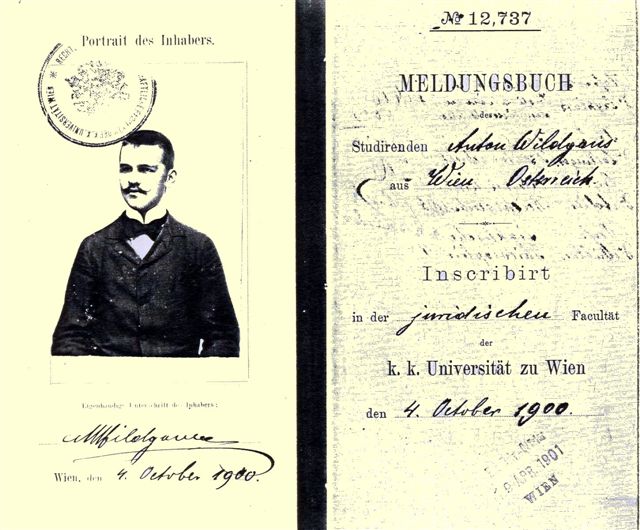 Portrait des Inhabers.
Eigenhändige Unterschrift des Inhabers:
AWildgans
Wien, den 4. October 1900.
№ 12,737
MELDUNGSBUCH
des
Studirenden Anton Wildgans
aus Wien Österreich.
Inscribirt
in der juridischen Facultät
der
k. k. Universität zu Wien
den 4. October 1900.
9 APR 1901
WIEN